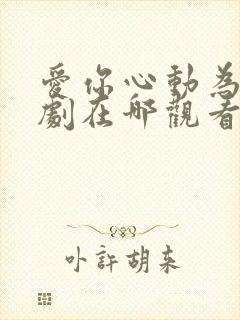 愛你心動為
劇在哪觀看
卟許胡来